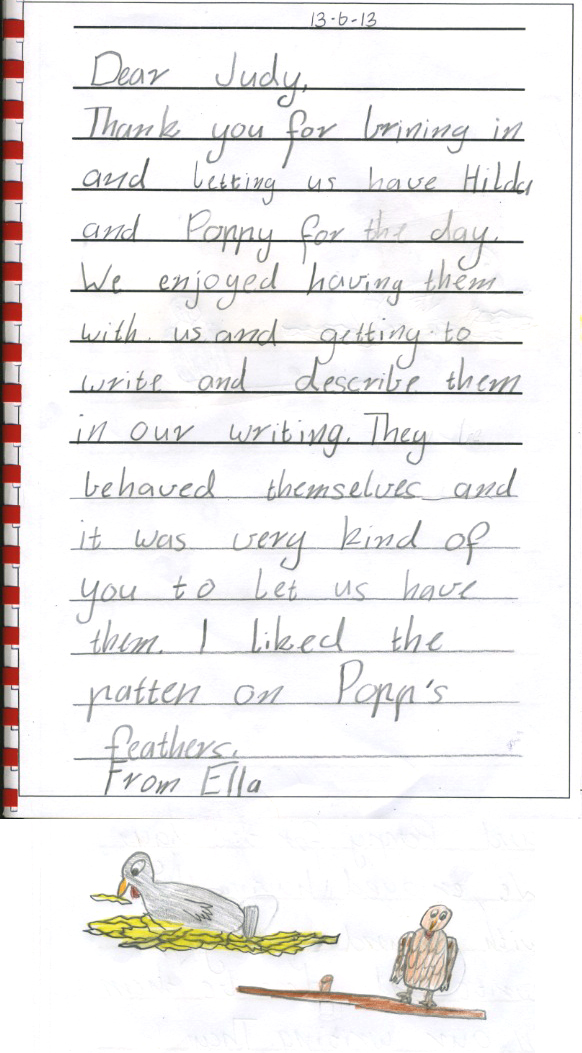 13-6-13
Dear Judy,
Thank you for brining in
and letting us have Hilda
and Poppy for the day.
We enjoyed having them
with us and getting to
write and describe them
in our writing. They
behaved themselves and
it was very kind of
you to let us have
them. I liked the
patten on Popp's
feathers.
From Ella